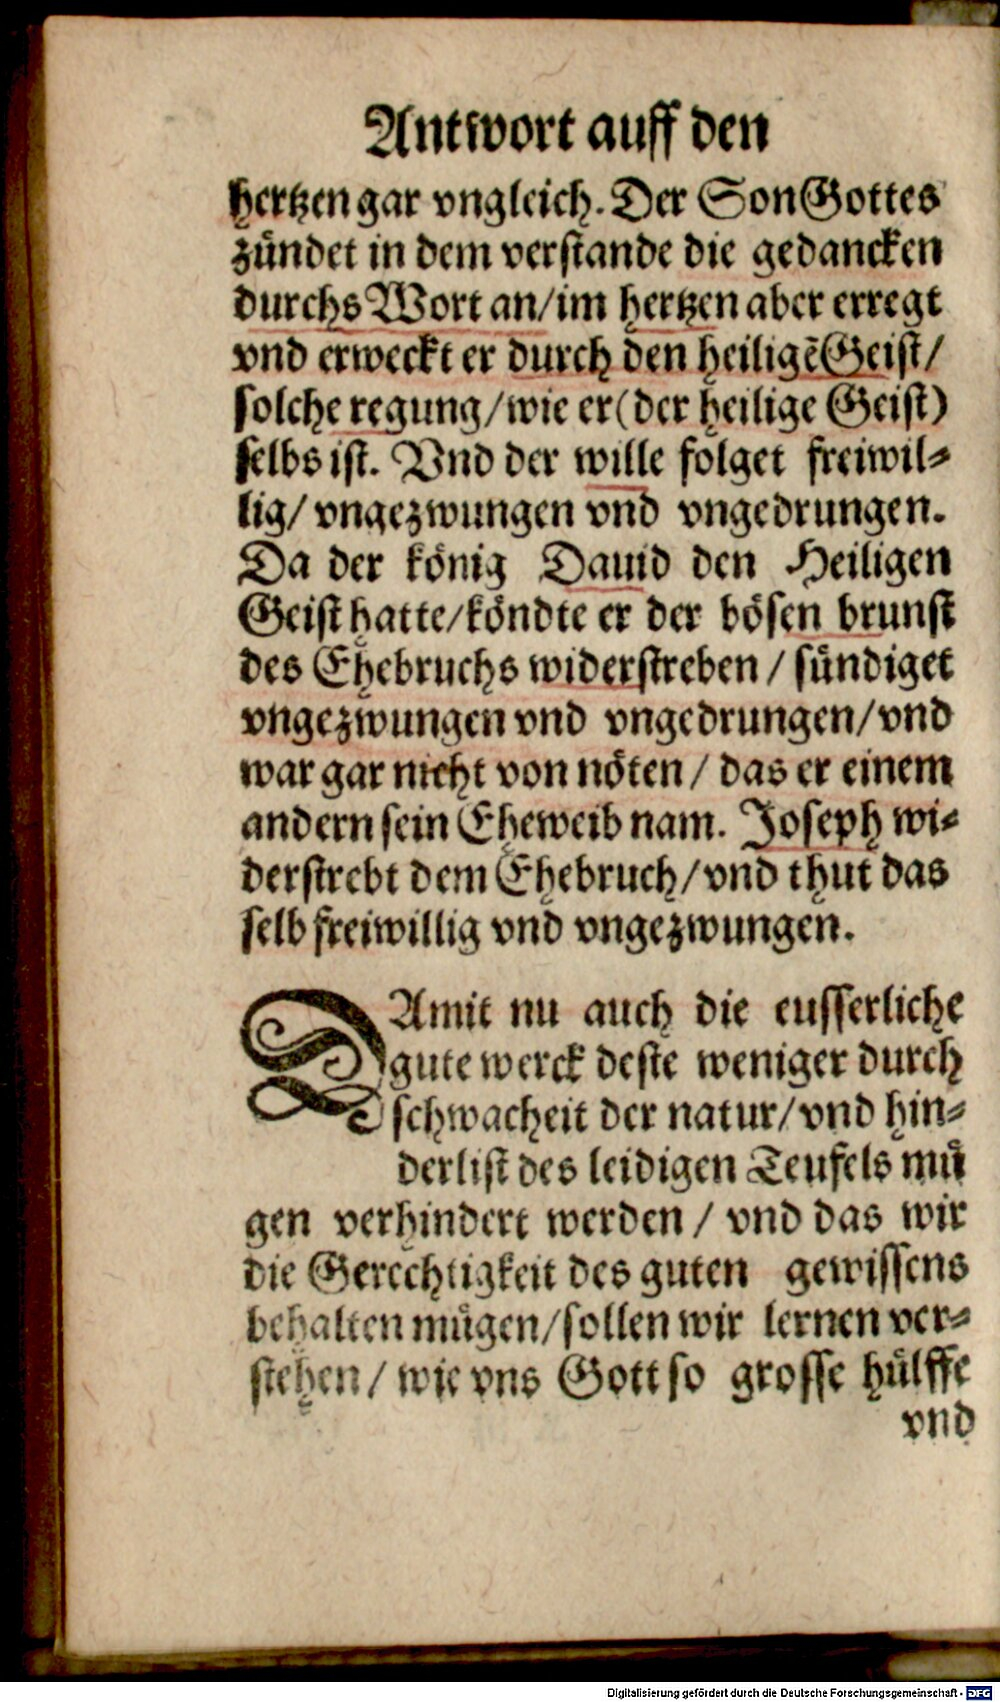 Antwort auff den
hertzen gar vngleich. Der Son Gottes
zündet in dem verstande die gedancken
durchs Wort an/im hertzen aber erregt
vnd erweckt er durch den heiligẽ Geist/
solche regung/wie er (der heilige Geist)
selbs ist. Vnd der wille folget freiwil-
lig/ vngezwungen vnd vngedrungen.
Da der könig Dauid den Heiligen
Geist hatte/köndte er der bösen brunst
des Ehebruchs widerstreben / sündiget
vngezwungen vnd vngedrungen/vnd
war gar nicht von nöten / das er einem
andern sein Eheweib nam. Joseph wi-
derstrebt dem Ehebruch/vnd thut das
selb freiwillig vnd vngezwungen.
DAmit nu auch die eusserliche
gute werck deste weniger durch
schwacheit der natur/vnd hin-
derlist des leidigen Teufels mü
gen verhindert werden / vnd das wir
die Gerechtigkeit des guten gewissens
behalten mügen/sollen wir lernen ver-
stehen / wie vns Gott so grosse hülffe
vnd
Digitalisierung gefördert durch die Deutsche Forschungsgemeinschaft - DFG